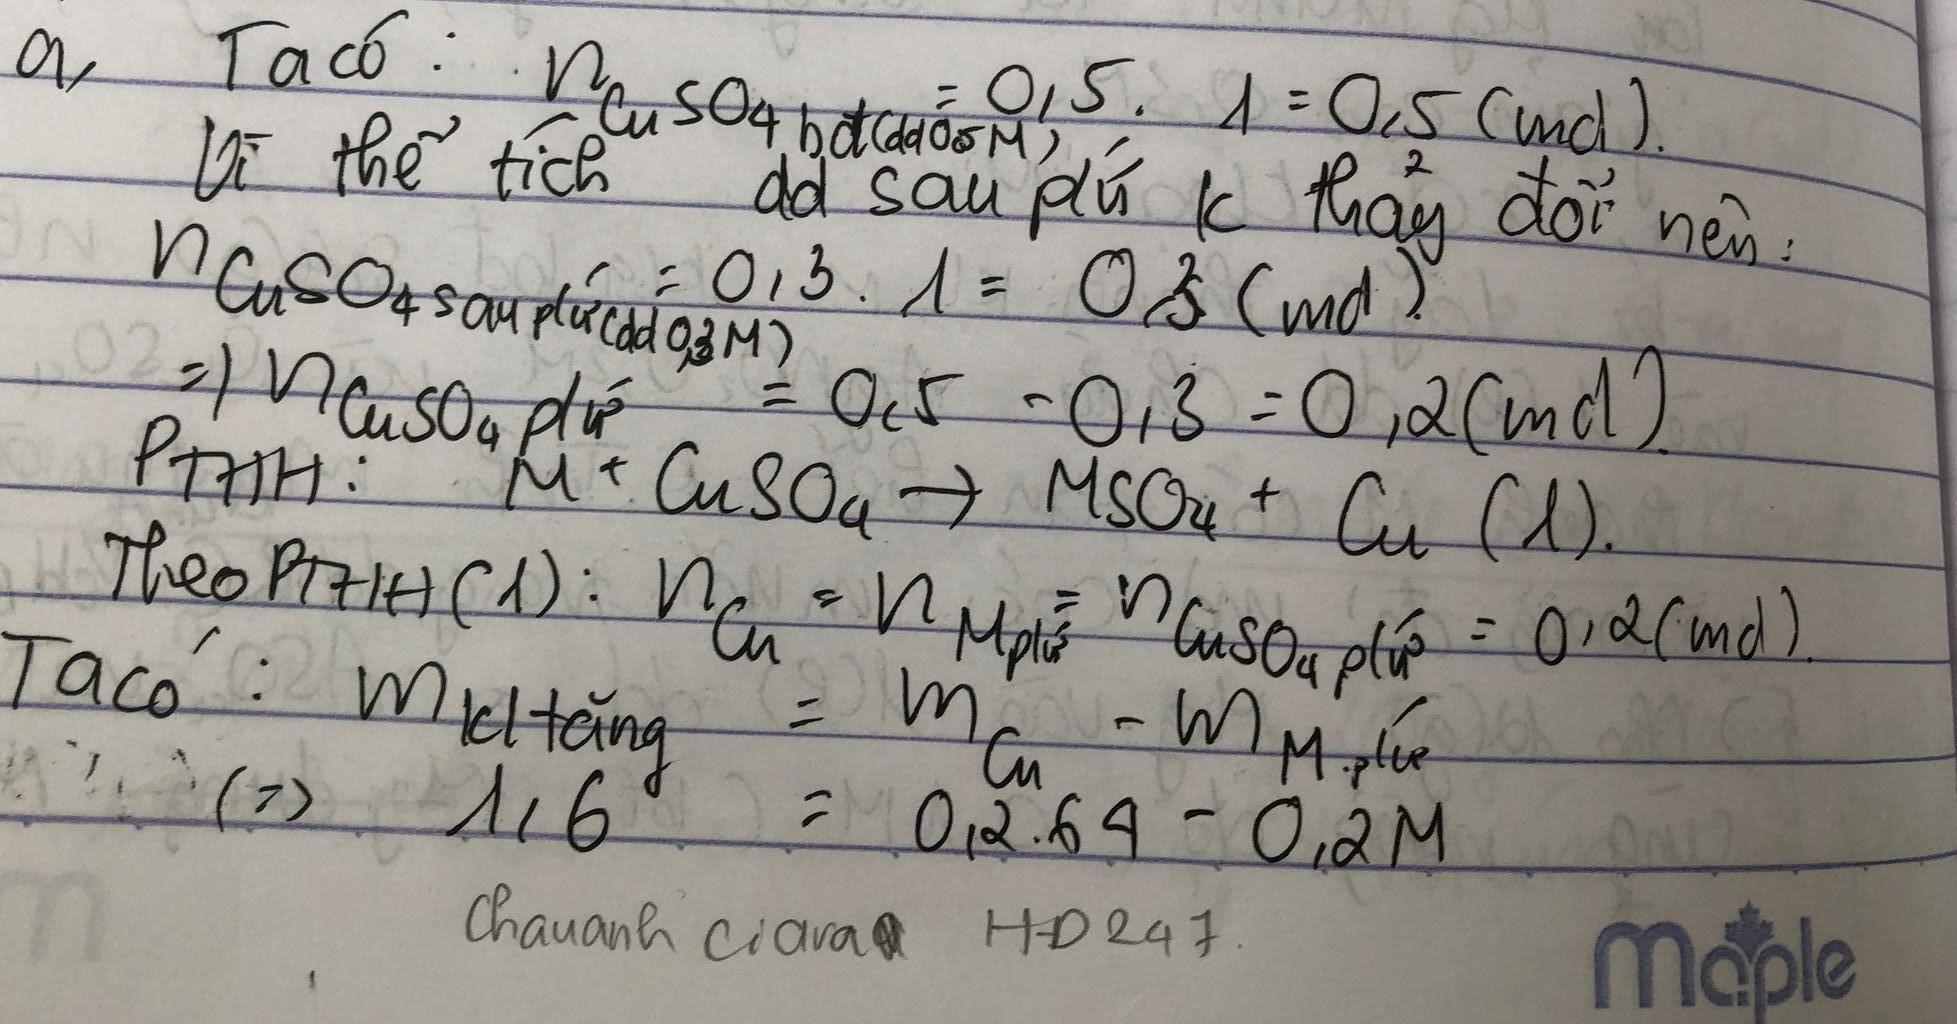 a, Ta có : nCuSO4 bđ(dd 0,5M) = 0,5 . 1 = 0,5 (mol).
Vì thể tích dd sau pứ k thảy đổi nên :
nCuSO4 sau pứ (dd 0,3M) = 0,3 . 1 = 0,3 (mol).
=) nCuSO4 pứ = 0,5 - 0,3 = 0,2 (mol).
PTHH : M + CuSO4 → MSO4 + Cu (1).
Theo PTHH (1) : nCu = nM pứ = nCuSO4 pứ = 0,2 (mol).
Ta có : mkl tăng = mCu - mM pứ
(=) 1,6 = 0,2.64 - 0,2M
Chauanh ciara HD247.
maple